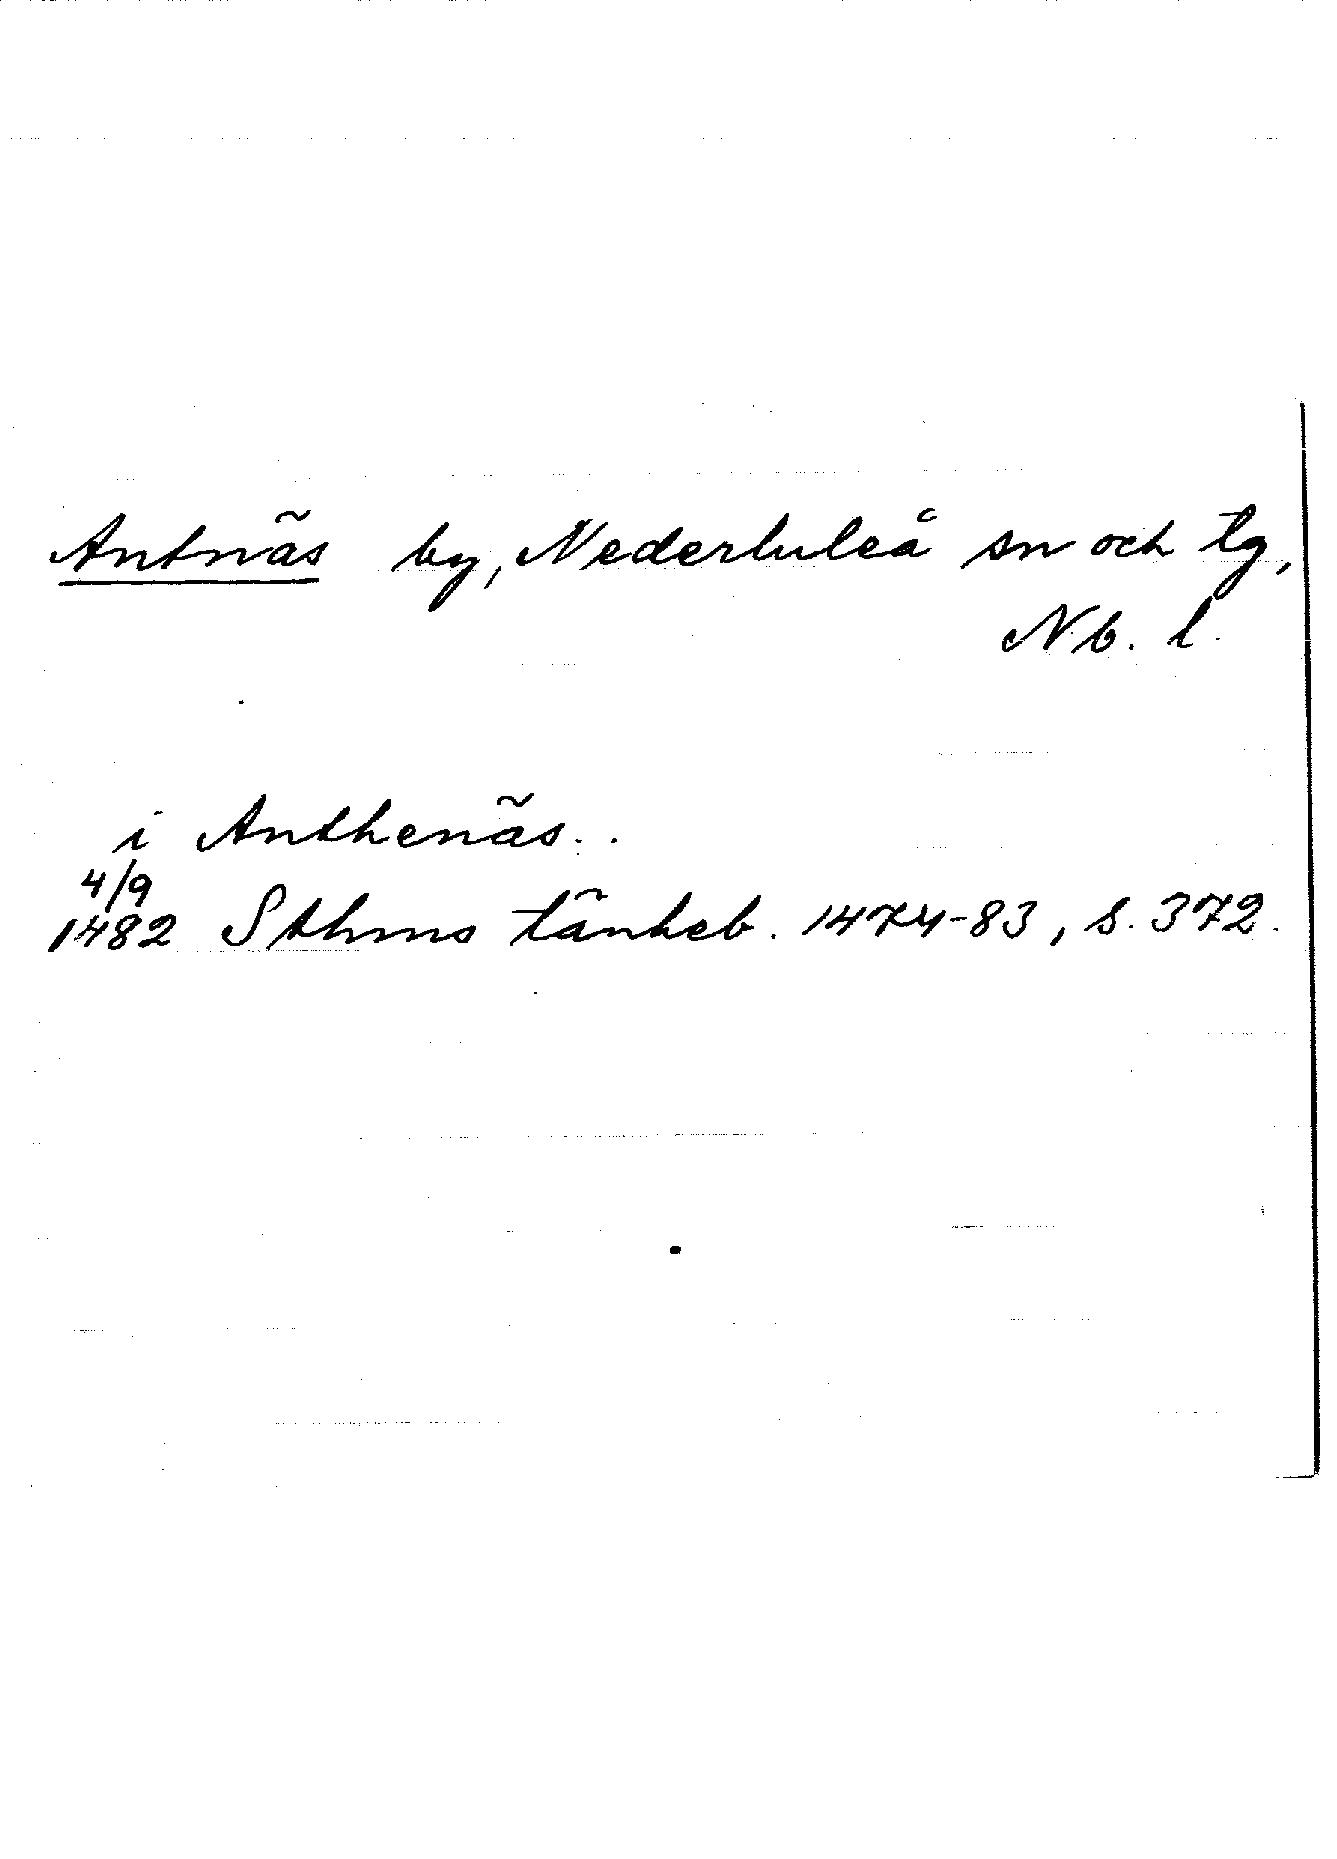 Antnäs by, Nederluleå sn och tg,
Nb. l.
i Anthenäs..
4/9
1482 Sthms tänkeb. 1474-83, s. 372.